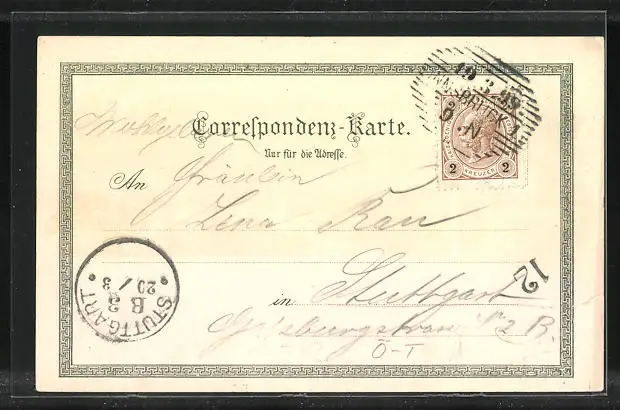 19.3.99
INNSBRUCK 1
Correspondenz-Karte.
Nur für die Adresse.
2 KREUZER 2
An Fräulein
Lina Rau
in Stuttgart
12
STUTTGART
B 3
20/3
2 B.
Ö-T